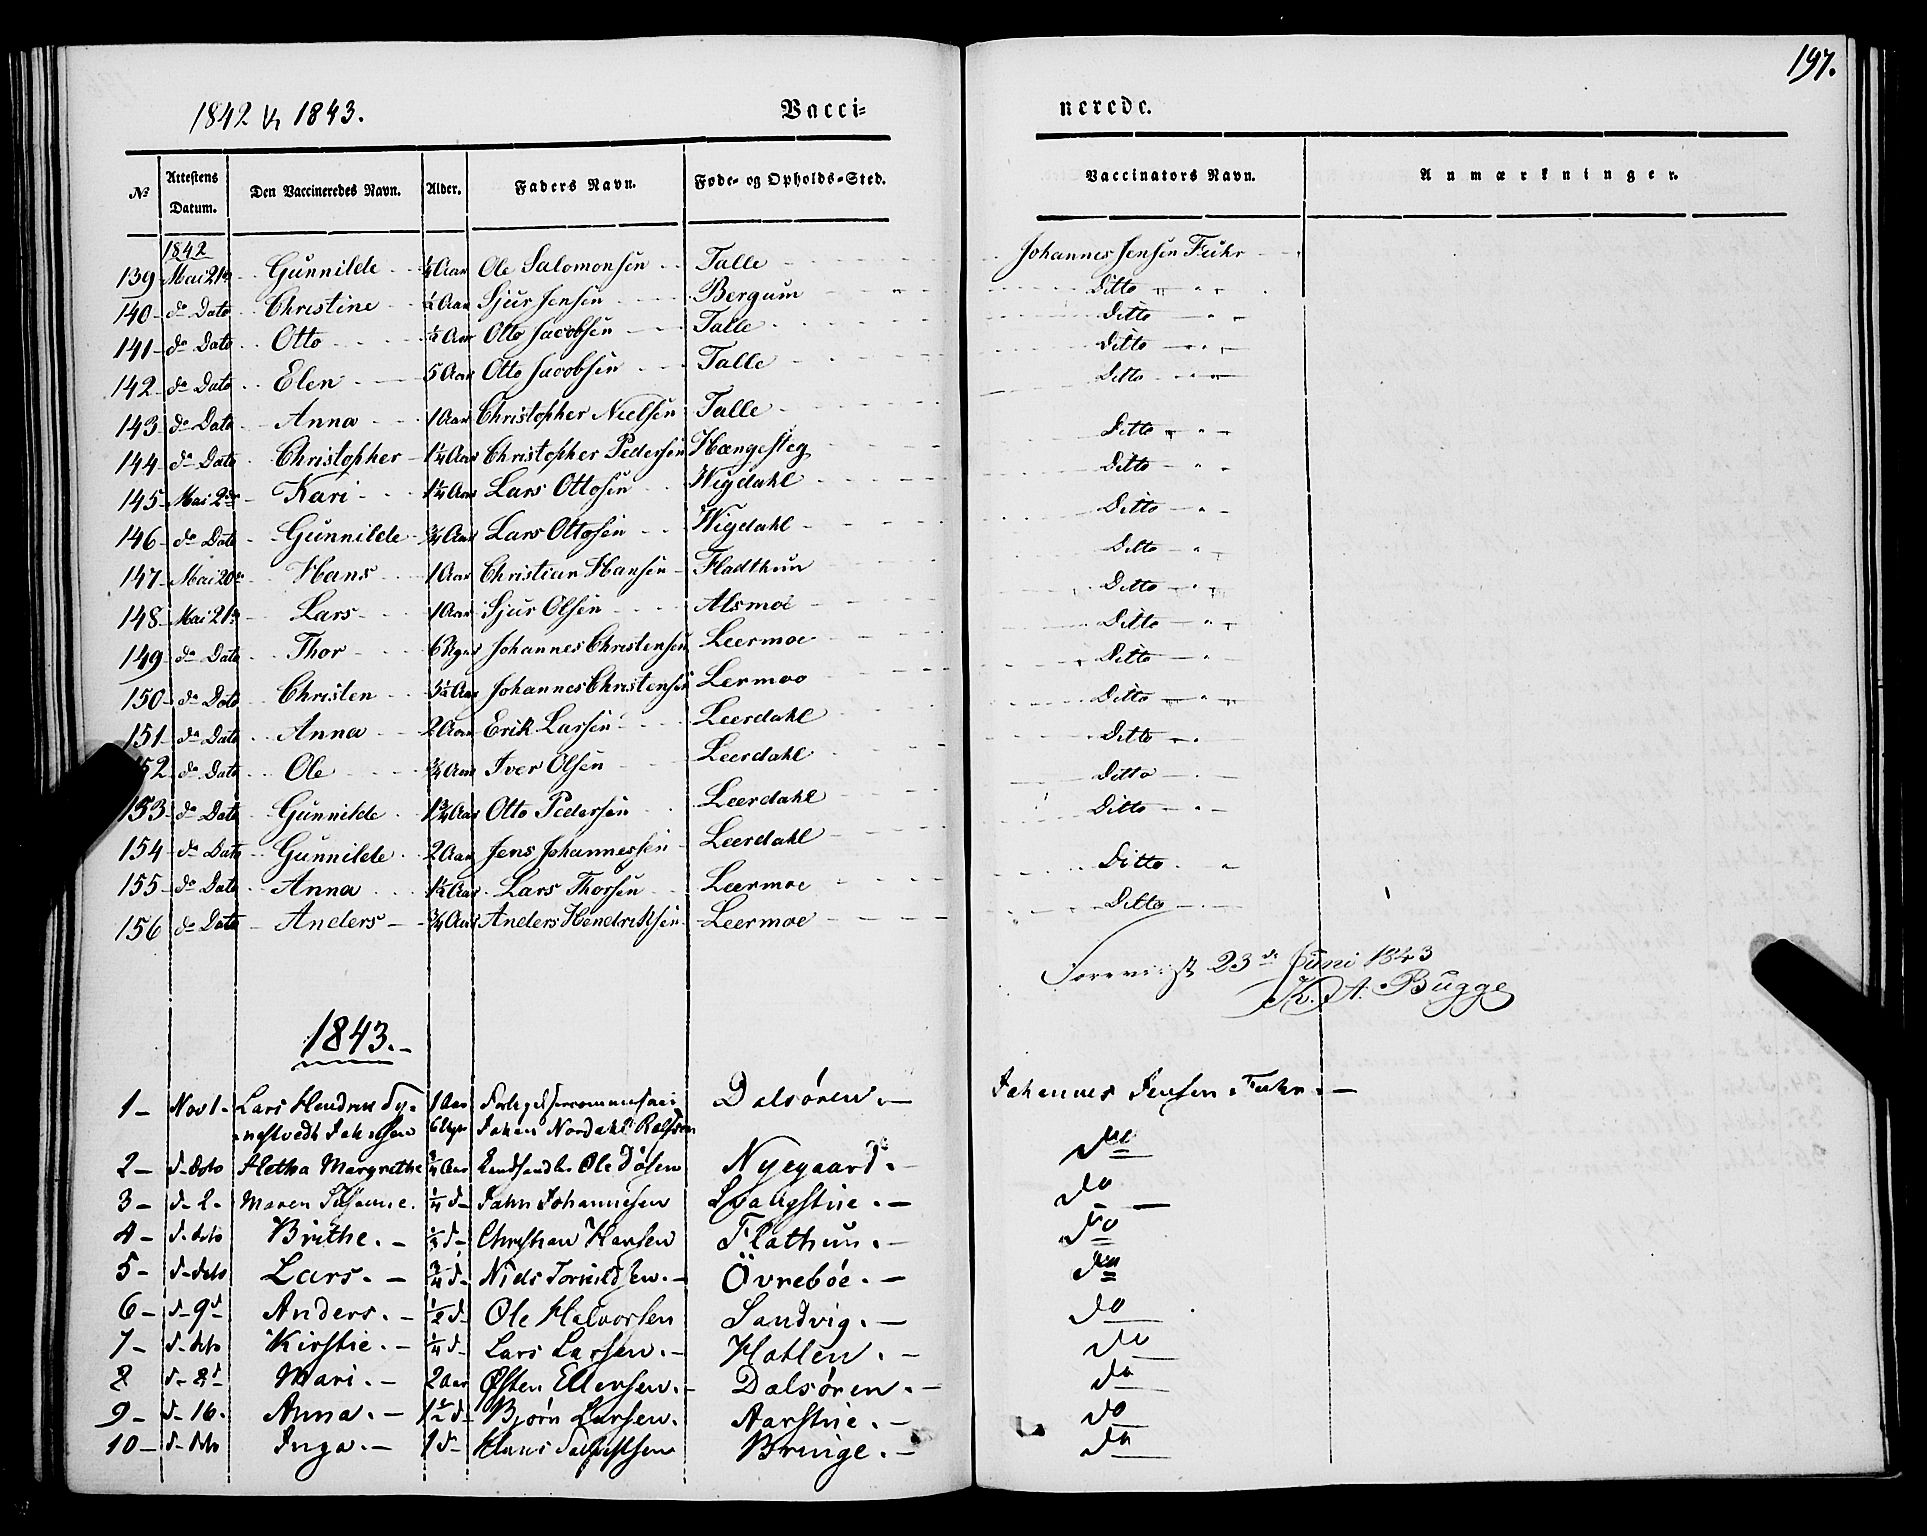 197.
1842 & 1843. Vacci= nerede.
No Attestens Datum. Den Vaccineredes Navn. Alder. Faders Navn. Føde- og Opholds-Sted. Vaccinators Navn. Anmærkninger.
1842
139 Mai 21de Gunnilde ¼ Aar Ole Salomonsen Talle Johannes Jensen Fuhr
140 do Dato Christine ¼ Aar Sjur Jensen Bergum Ditto
141 do Dato Otto Aar Otto Jacobsen Talle Ditto
142 do Dato Elen 5 Aar Otto Jacobsen Talle Ditto
143 do Dato Anna 1 Aar Christopher Nielsen Talle Ditto
144 do Dato Christopher 1¼ Aar Christopher Pedersen Hængesteg Ditto
145 Mai 2de Kari 1¼ Aar Lars Ottosen Wigdahl Ditto
146 do Dato Gunnilde ¾ Aar Lars Ottosen Wigdahl Ditto
147 Mai 20de Hans 1 Aar Christian Hansen Fladthun Ditto
148 Mai 21de Lars 1 Aar Sjur Olsen Alsmoe Ditto
149 do Dato Thor 6 Ugr Johannes Christensen Leermoe Ditto
150 do Dato Christen 3½ Aar Johannes Christensen Lermoo Ditto
151 do Dato Anna 2 Aar Erik Larsen Leerdahl Ditto
152 do Dato Ole ¾ Aar Iver Olsen Leerdahl Ditto
153 do Dato Gunnilde 1¾ Aar Otto Pedersen Leerdahl Ditto
154 do Dato Gunnilde 2 Aar Jens Johannessen Leerdahl Ditto
155 do Dato Anna 1½ Aar Lars Thorsen Leermoe Ditto
156 do Dato Anders ¾ Aar Anders Hendriksen Leermoe Ditto
Foreviist 23de Juni 1843
K. A. Bugge
1843.
1 Nov 1 Lars Hendrik Ty- 1 Aar Dalsøren. Johannes Jensen Fuhr.
nestvedt Johnsen 6 Ugr Johan Nordahl Rolfsen
2 d- dito Aletha Margrethe ¾ Aar Landhandler Ole Døsen Nyegaard. do
3 d- 2 Maren Susanne. ¼ d- John Johannesen do
4 d- dito Brithe. d- Christian Hansen Flathun. do
5 d- dito Lars. ¾ d- Niels Torkildsen. Övrebøe. do
6 d- 9d Anders. ½ d- Ole Halvorsen Sandvig. do
7 d- dito Kirstie. ¼ d- Lars Larsen. Hatlen. do
8 d- 8d Mari. 2 Aar Østen Ellensen. Dalsøren. do
9 d- 16. Anna. 1½ d- Bjørn Larsen. Aarstue. do
10 d- dito Inga. 1 d- Hans Bringe. do